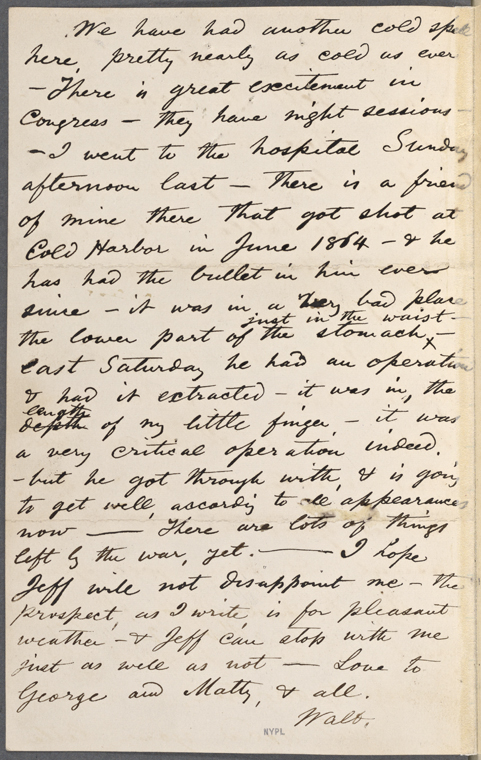 We have had another cold spell
here, pretty nearly as cold as ever
- There is great excitement in
Congress - they have night sessions -
- I went to the hospital Sunday
afternoon last - there is a friend
of mine there that got shot at
Cold Harbor in June 1864 - & he
has had the bullet in him ever
since - it was in a very bad place
just in the waist -
the lower part of the stomach, -
last Saturday he had an operation
& had it extracted - it was in, the
length
depth of my little finger, - it was
a very critical operation indeed.
- but he got through with, & is going
to get well, accordig to all appearances
now — There are lots of things
left by the war, yet. — I hope
Jeff will not disappoint me - the
prospect, as I write, is for pleasant
weather - & Jeff can stop with me
just as well as not — Love to
George and Matty, & all.
Walt.
NYPL